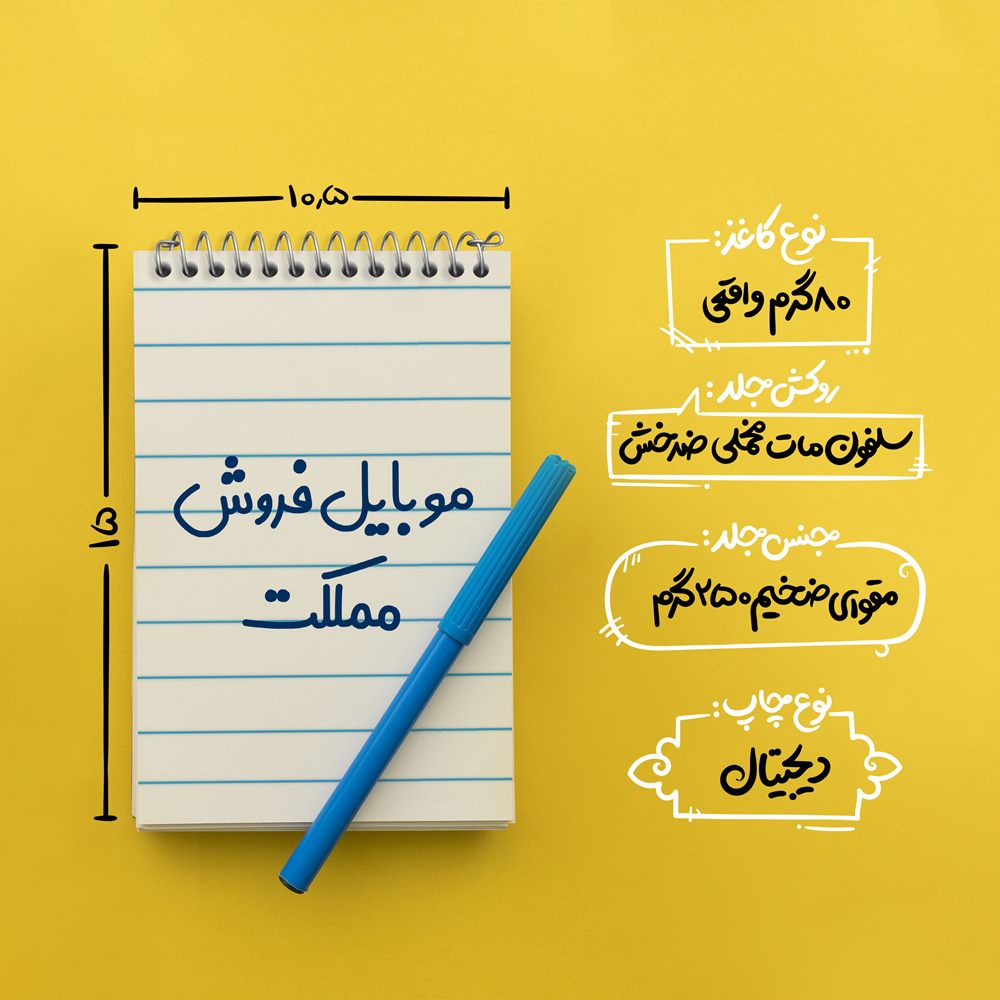 ۱۰٫۵
۱۵
موبایل فروش
مملکت
نوع کاغذ:
۸۰گرم واقعی
روکش جلد:
سلفون مات مخملی ضدخش
جنس جلد:
مقوای ضخیم ۲۵۰گرم
نوع چاپ:
دیجیتال